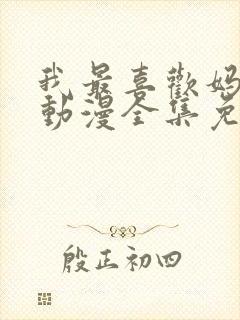 我最喜歡媽
動漫全集免
殷正初四